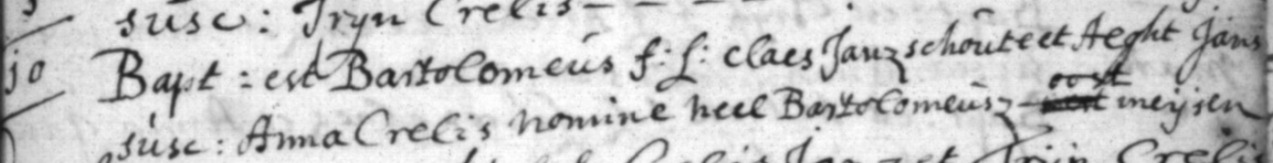 susc: Tryn Crelis - - - -
10 Bapt: est Bartolomeus f: l: claes Janz schoute et Aeght Jans
susc: Anna Crelis nomine neel Bartolomeusz oost meijsen
Crelis Janz et Trijn Crelis